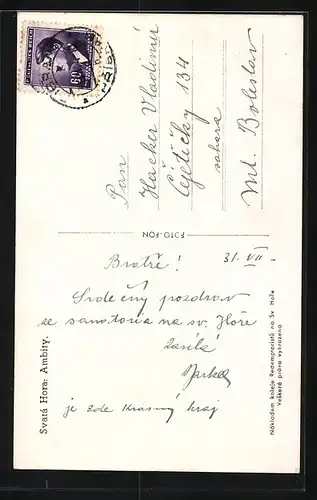 Pan
Hacker Vladimír
Čejetičky 134
Ml. Boleslav
FOTO-FON
31. VII.
Bratře!
Srdečný pozdrav
ze sanatoria na sv. Hoře
zasílá
je zde krásný kraj
Svatá Hora: Ambity.
Nákladem koleje Redemptoristů na Sv. Hoře
Veškerá práva vyhrazena
60